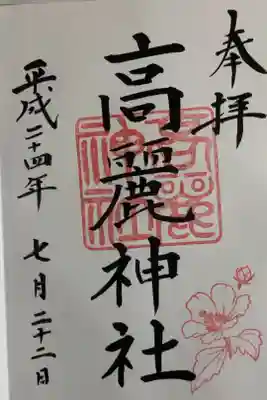 奉拝
高麗神社
平成二十四年 七月二十二日
高麗神社